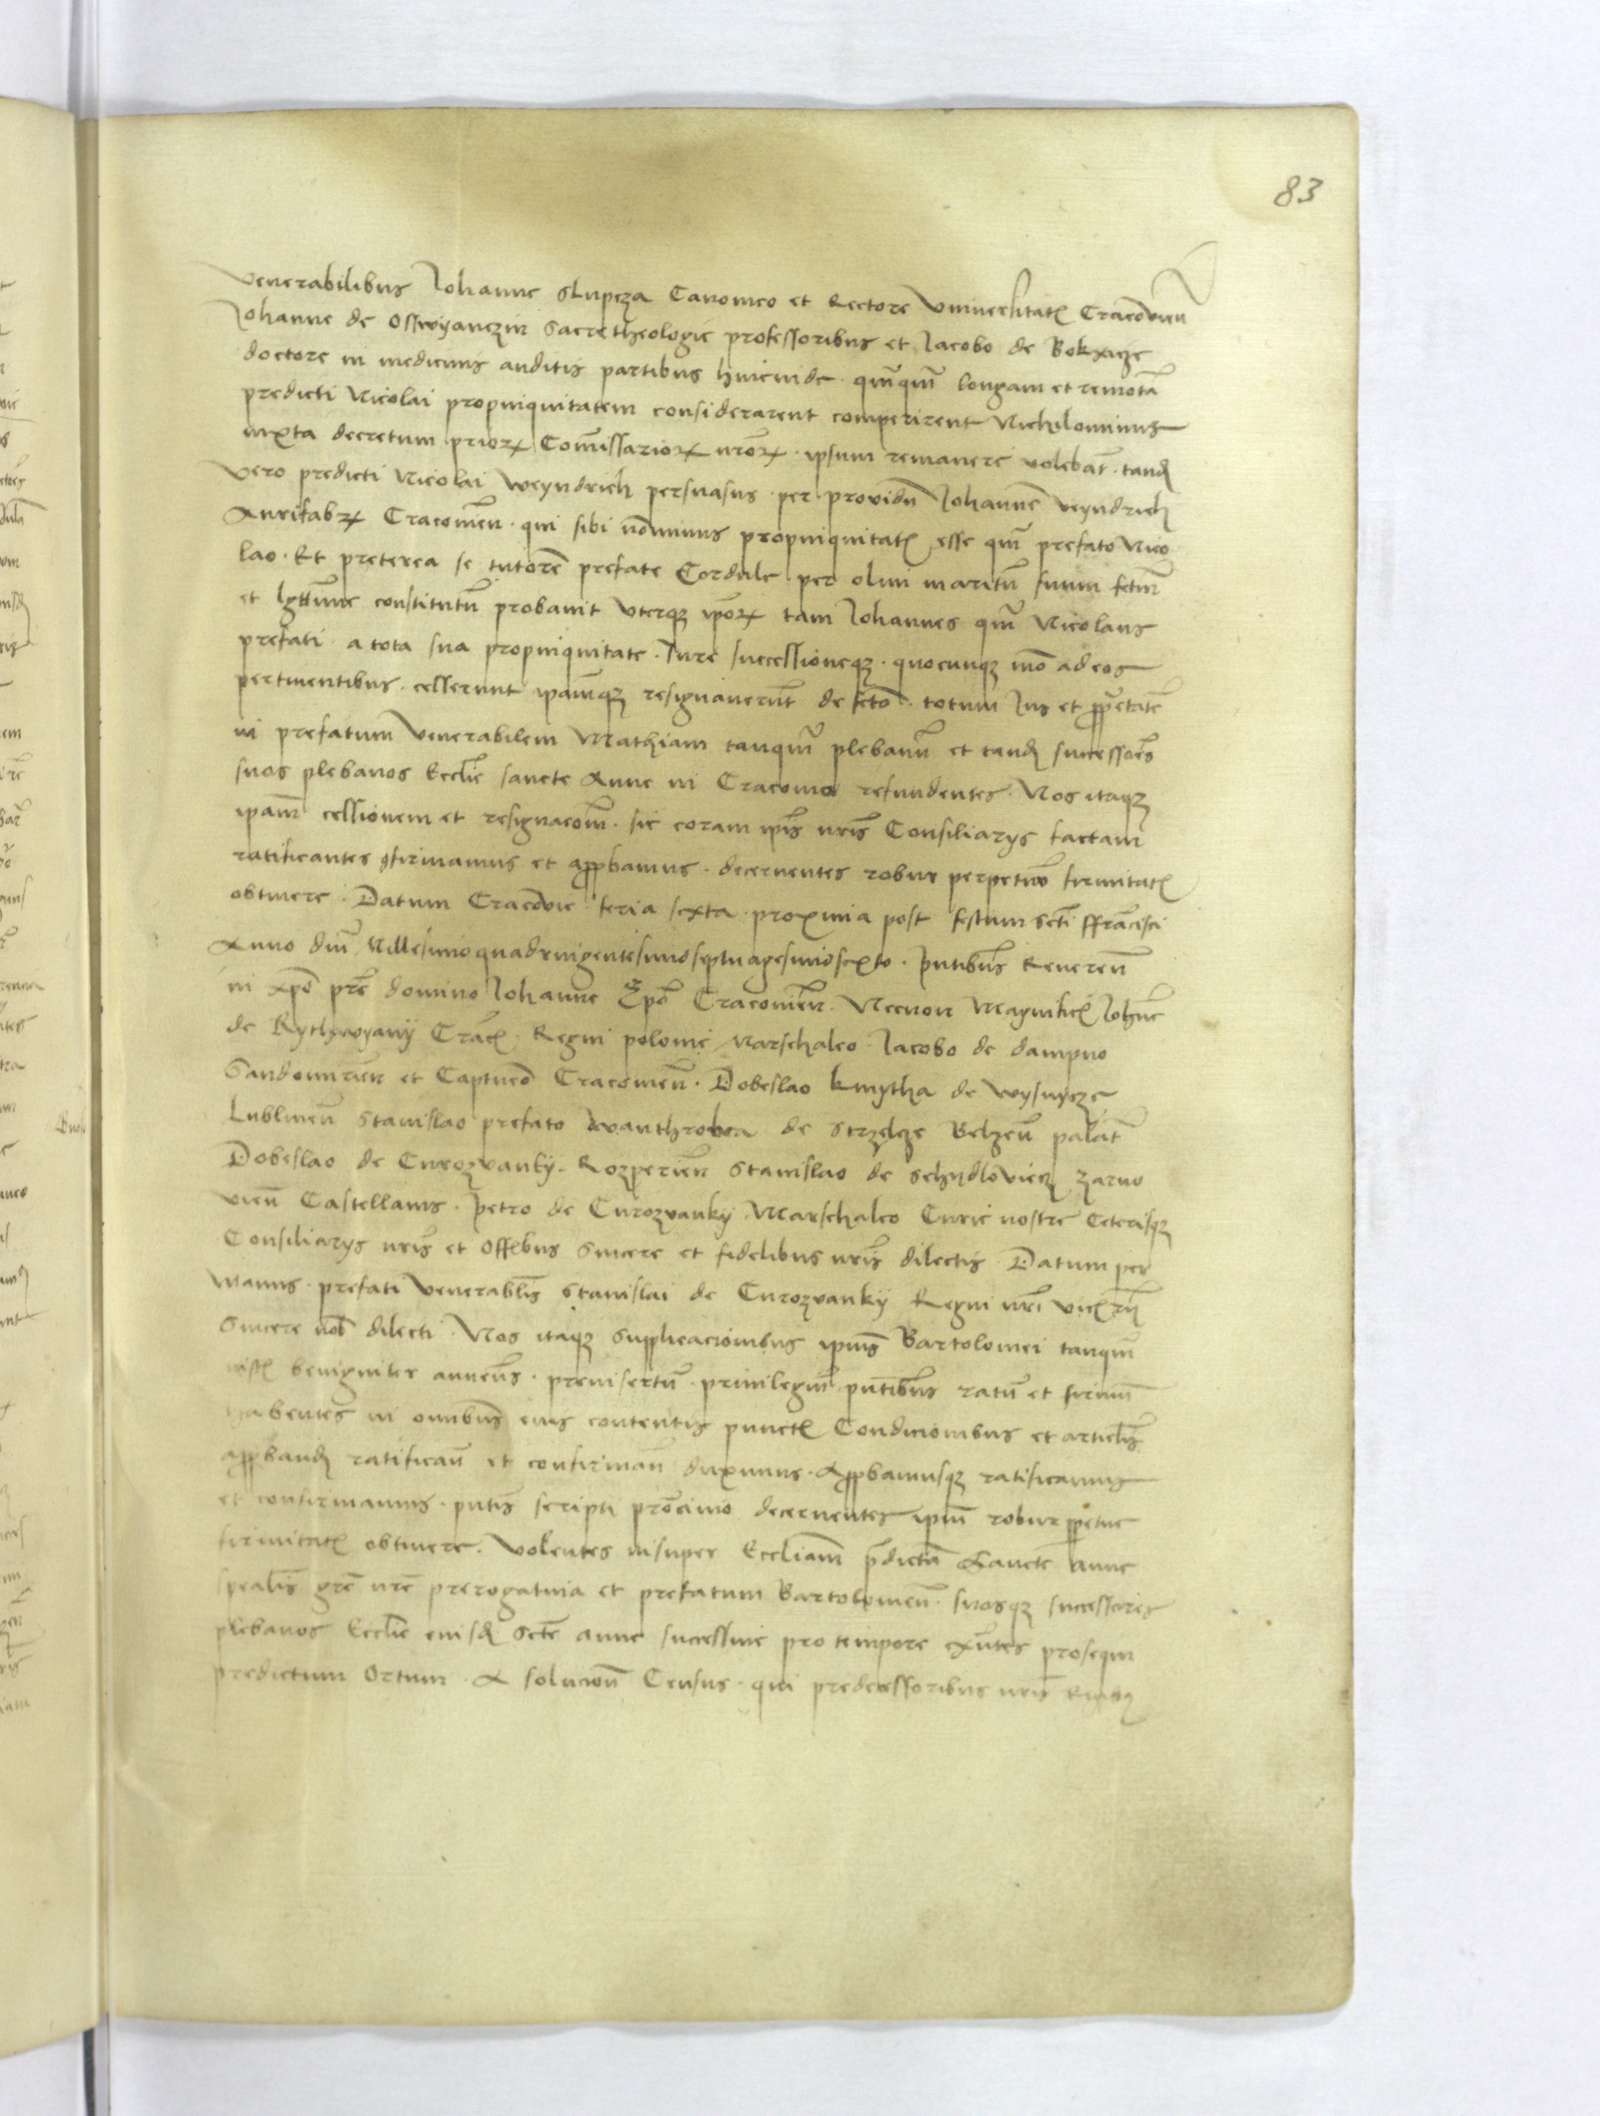 83
Venerabilibus Iohanne Slupcza Canonico et Rectore Vniuersitatꝭ Cracouieñ
Iohanne de Osswyanczin Sacretheologie professoribus et Iacobo de Bokxicze
doctore in medicinis auditis partibus hincinde · quᷓquᷓ longam et remotā
predicti Nicolai propinquitatem considerarent comperirent Nichilominus
iuxta decretum prioꝝ Com̄issarioꝝ nr̄oꝝ · ipsum remanere volebāt · tand
vero predicti Nicolai Weyndrich persuasus · per prouidū Iohannē Veyndrich
Aurifabꝝ Cracouieñ · qui sibi nōminus propinquitatꝭ esse quᷓ prefato Nico
lao · Et preterea se tutorē prefate Cordule per olim maritū suum
et constitutū probauit vterqꝫ ip̄oꝝ tam Iohannes quᷓ Nicolaus
prefati · a tota sua propinquitate · Iure successioneqꝫ · quocunqꝫ mō ad eos
pertinentibus · cesserunt ipāmqꝫ resignauerūt de fctō · totum Ius et ꝓprietatē
in prefatum Venerabilem Mathiam tanquᷓ plebanū et tand successores
suos plebanos Eccl̄ie sancte Anne in Cracouia refundentes · Nos itaqꝫ
ipām cessionem et resignacōm̄ · sic coram ip̄is nr̄is Consiliarys factam
ratificantes ꝯfirmamus et approbamus · decernentes robur perpetuo firmitatꝭ
obtinere · Datum Cracouie feria sexta · proxima post festum Sctī ffrancisci
Anno dnī Millesimoquadringentesimoseptuagesimosexto · pn̄tibus Reuereñ
in xp̄o pr̄e domino Iohanne Ep̄o Cracouieñ · Necnon Magnificꝭ Ioh̄ne
de Rythwyany Cracꝭ · Regni polonie Marschalco · Iacobo de dampno
Sandomireñ et Captaneo Cracouieñ · Dobeslao kmytha de Wysnycze
Lublineñ Stanislao prefato Wanthrobca de Strzelcze Belzeñ palat̄
Dobeslao de Curozvanky · Rozpericñ Stanislao de Schydlovicz Zarno
vieñ Castellanis · petro de Curozvanky Marschalco Curie nostre Ceterisqꝫ
Consiliarys nr̄is et Offcībus Sincere et fidelibus nr̄is dilectis Datum per
manus · prefati Venerabilis Stanislai de Curozvanky Regni nr̄i
Sincere nob̄ dilecti · Nos itaqꝫ Supplicacionibus ipius Bartolomei tanquᷓ
iustꝭ benigniter annueñs · preinsertū · priuilegiū pn̄tibus ratū et firmū
habentes in omnibus eius contentis punctꝭ Condicionibus et articlis
approband ratificañ et confirmañ duximus · Approbamusqꝫ ratificamus
et confirmamus · pn̄tis scripti decernentes ipm̄ robur ꝑpetue
firmitatꝭ obtinere · Volentes insuper Eccl̄iam p̄dictā Sancte Anne
spealis gr̄e nr̄e prerogatiua et prefatum Bartolomeū · suosqꝫ successores
plebanos Eccl̄ie eiusd Scte Anne successiue pro tempore exn̄tes prosequi
predictum Ortum · A solucioñ Census · qui predecessoribus nr̄is